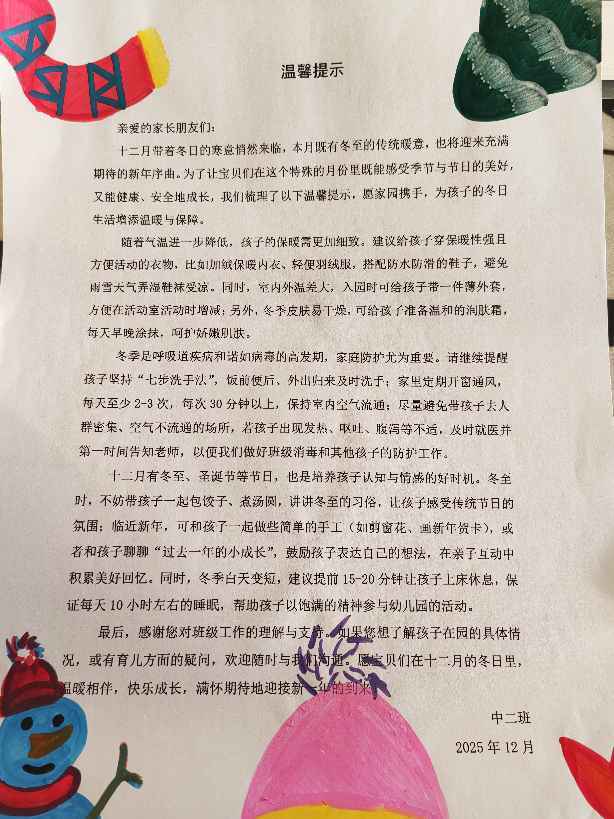 温馨提示
亲爱的家长朋友们：
十二月带着冬日的寒意悄然来临，本月既有冬至的传统暖意，也将迎来充满
期待的新年序曲。为了让宝贝们在这个特殊的月份里既能感受季节与节日的美好，
又能健康、安全地成长，我们梳理了以下温馨提示，愿家园携手，为孩子的冬日
生活增添温暖与保障。
随着气温进一步降低，孩子的保暖需更加细致。建议给孩子穿保暖性强且
方便活动的衣物，比如加绒保暖内衣、轻便羽绒服，搭配防水防滑的鞋子，避免
雨雪天气弄湿鞋袜受凉。同时，室内外温差大，入园时可给孩子带一件薄外套，
方便在活动室活动时增减；另外，冬季皮肤易干燥，可给孩子准备温和的润肤霜，
每天早晚涂抹，呵护娇嫩肌肤。
冬季是呼吸道疾病和诺如病毒的高发期，家庭防护尤为重要。请继续提醒
孩子坚持“七步洗手法”，饭前便后、外出归来及时洗手；家里定期开窗通风，
每天至少 2-3 次，每次 30 分钟以上，保持室内空气流通；尽量避免带孩子去人
群密集、空气不流通的场所，若孩子出现发热、呕吐、腹泻等不适，及时就医并
第一时间告知老师，以便我们做好班级消毒和其他孩子的防护工作。
十二月有冬至、圣诞节等节日，也是培养孩子认知与情感的好时机。冬至
时，不妨带孩子一起包饺子、煮汤圆，讲讲冬至的习俗，让孩子感受传统节日的
氛围；临近新年，可和孩子一起做些简单的手工（如剪窗花、画新年贺卡），或
者和孩子聊聊“过去一年的小成长”，鼓励孩子表达自己的想法，在亲子互动中
积累美好回忆。同时，冬季白天变短，建议提前 15-20 分钟让孩子上床休息，保
证每天 10 小时左右的睡眠，帮助孩子以饱满的精神参与幼儿园的活动。
最后，感谢您对班级工作的理解与支持。如果您想了解孩子在园的具体情
况，或有育儿方面的疑问，欢迎随时与我们沟通。愿宝贝们在十二月的冬日里，
温暖相伴，快乐成长，满怀期待地迎接新一年的到来
中二班
2025 年 12 月